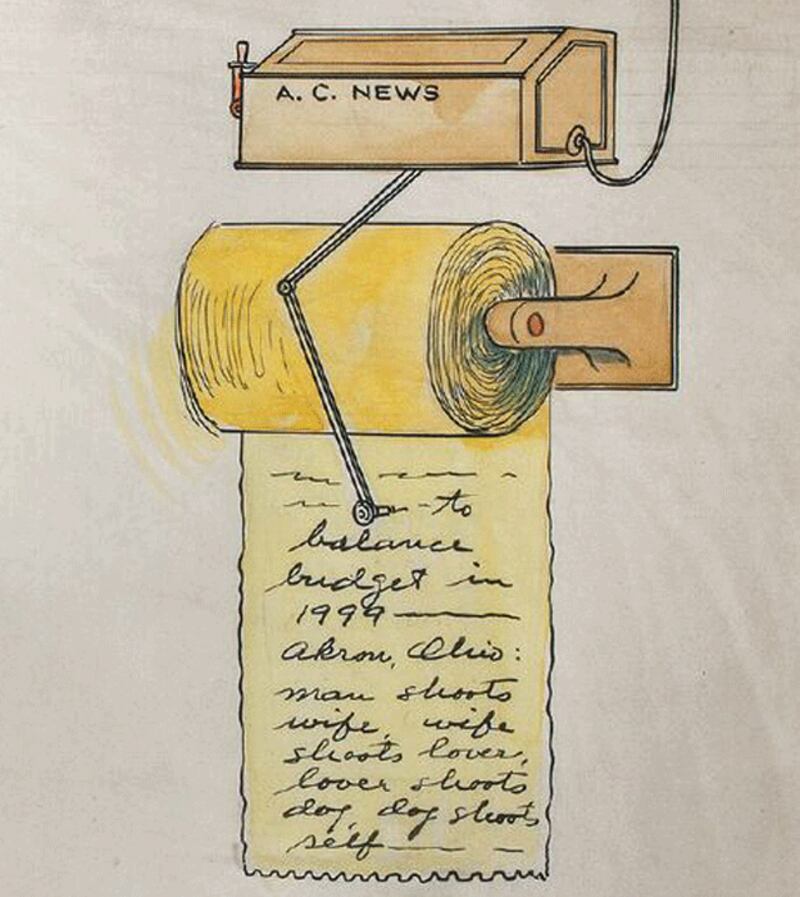 A. C. NEWS
to
balance
budget in
1999
Akron, Ohio:
man shoots
wife, wife
shoots lover,
lover shoots
dog, dog shoots
self